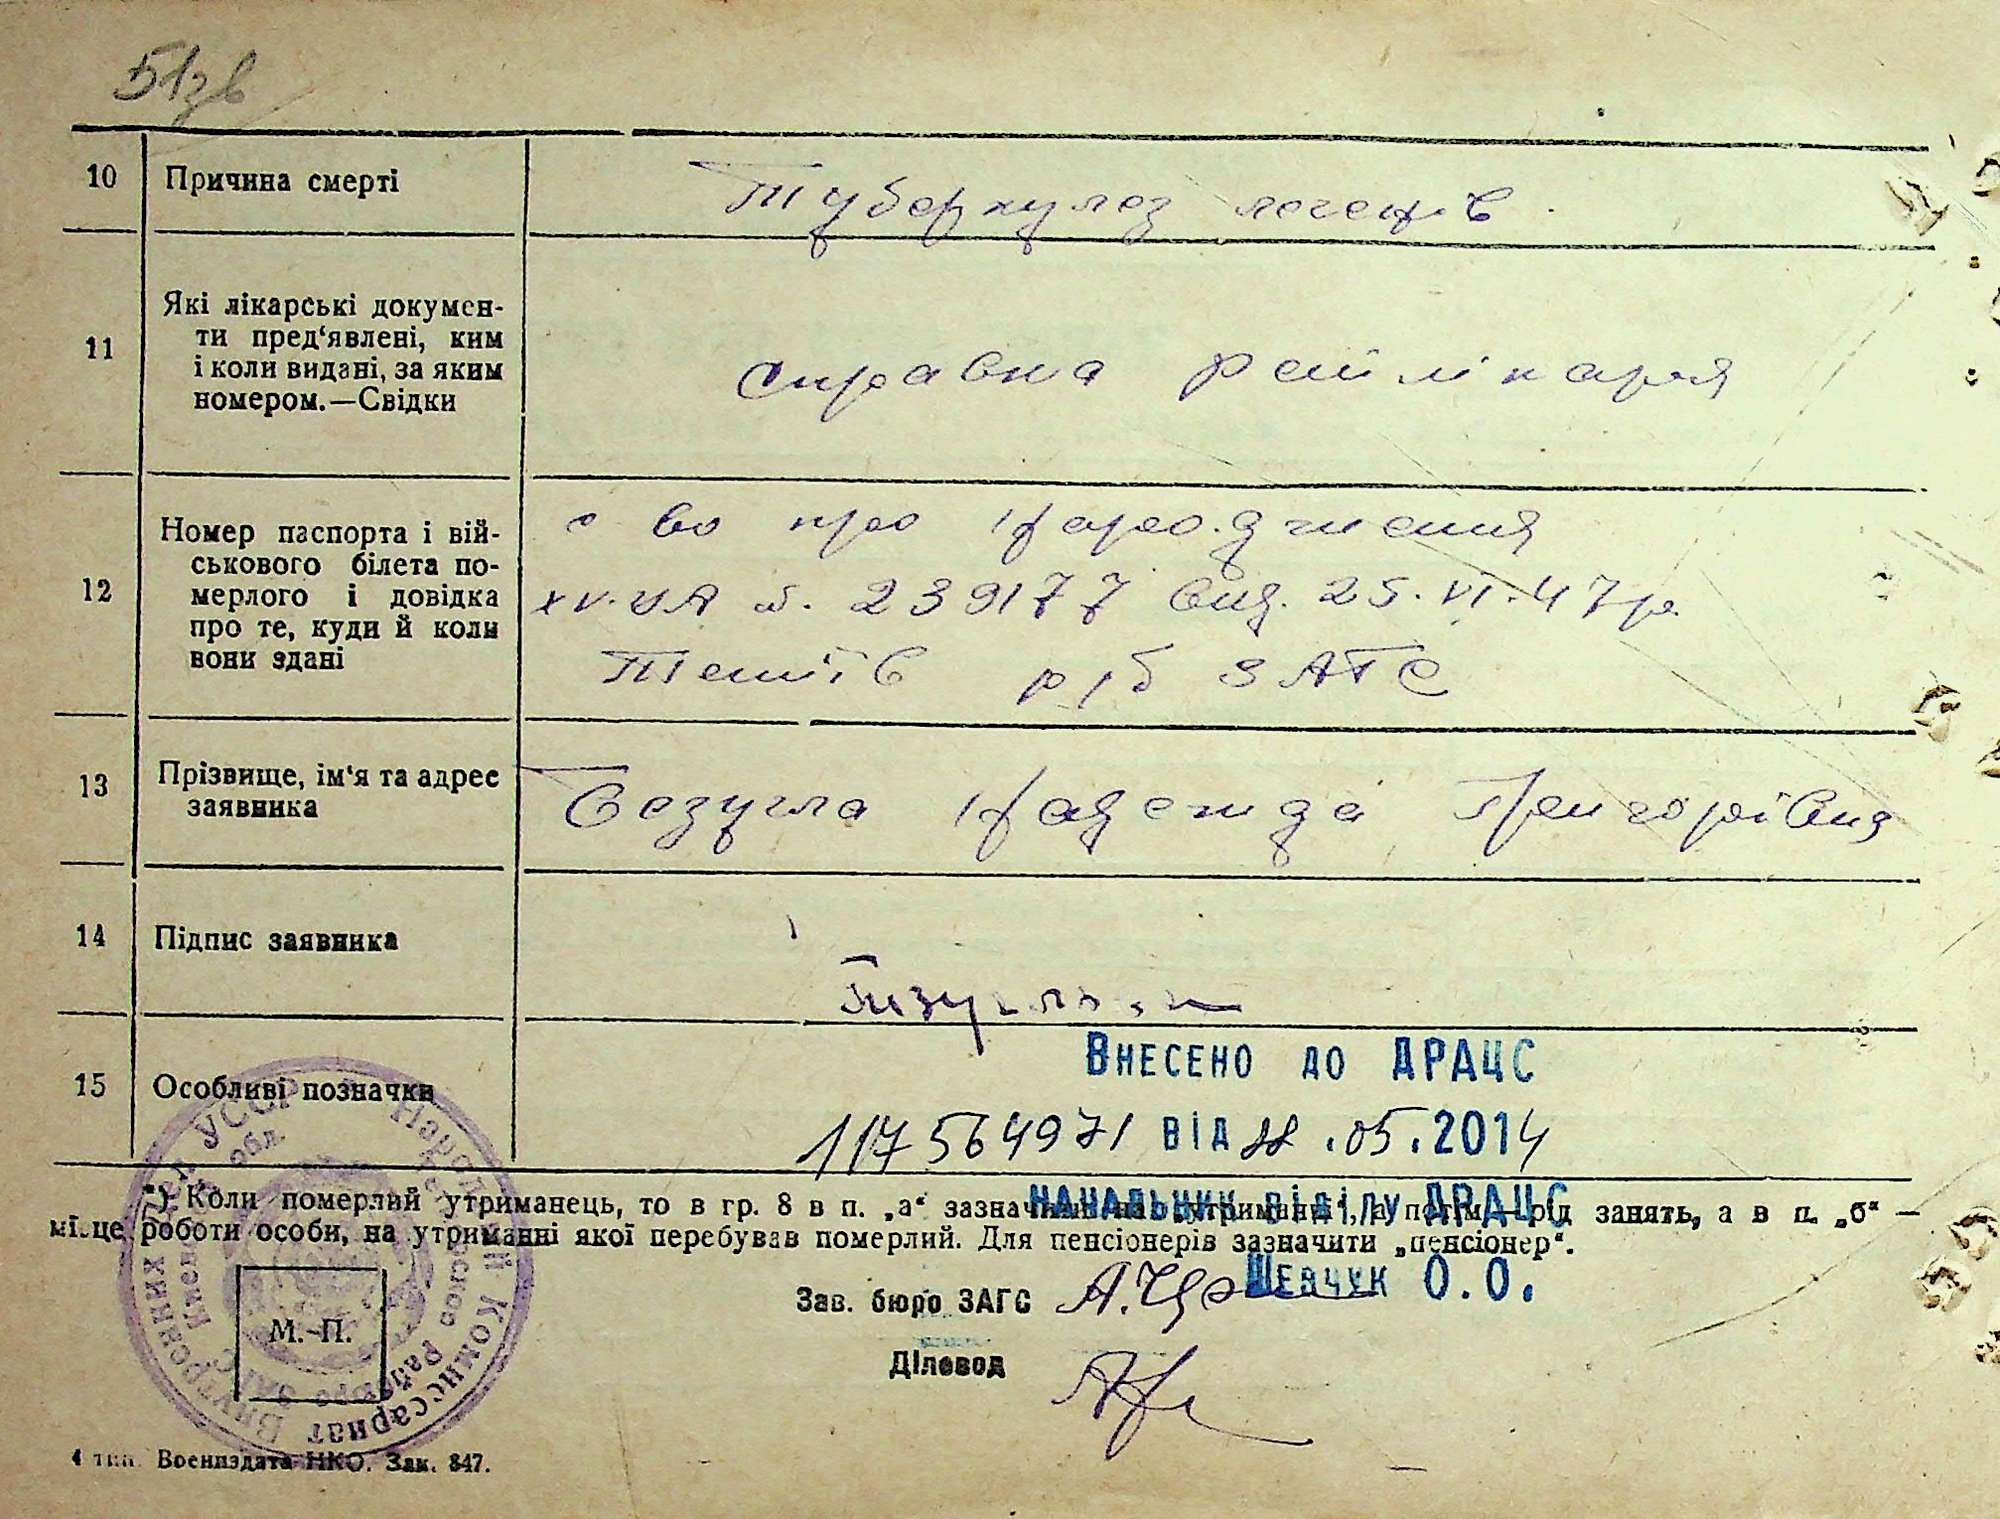 51зв
10 Причина смерті Туберкульоз легенів.
11 Які лікарські докумен-
ти пред‘явлені, ким
і коли видані, за яким
номером.—Свідки
справка райлікаря
12 Номер паспорта і вій-
ськового білета по-
мерлого і довідка
про те, куди й коли
вони здані
с во про народження
XV-УА №. 239177 вид. 25.VI.47р.
Тетіїв р/б ЗАГС
13 Прізвище, ім‘я та адрес
заявника
Безугла Надежда Григорівна
14 Підпис заявника
15 Особливі позначки
Внесено до ДРАЦС
117564971 від .05.2014
*) Коли померлий утриманець, то в гр. 8 в п. „а“ зазначити „на утриманні“, а потім—рід занять, а в п. „б“ —
місце роботи особи, на утриманні якої перебував померлий. Для пенсіонерів зазначити „пенсіонер“.
начальник відділу ДРАЦС
Шевчук О.О.
Зав. бюро ЗАГС
Діловод
М.-П.
Народный Комиссариат Внутренних Дел УССР
4 тип. Воениздата НКО. Зак. 847.